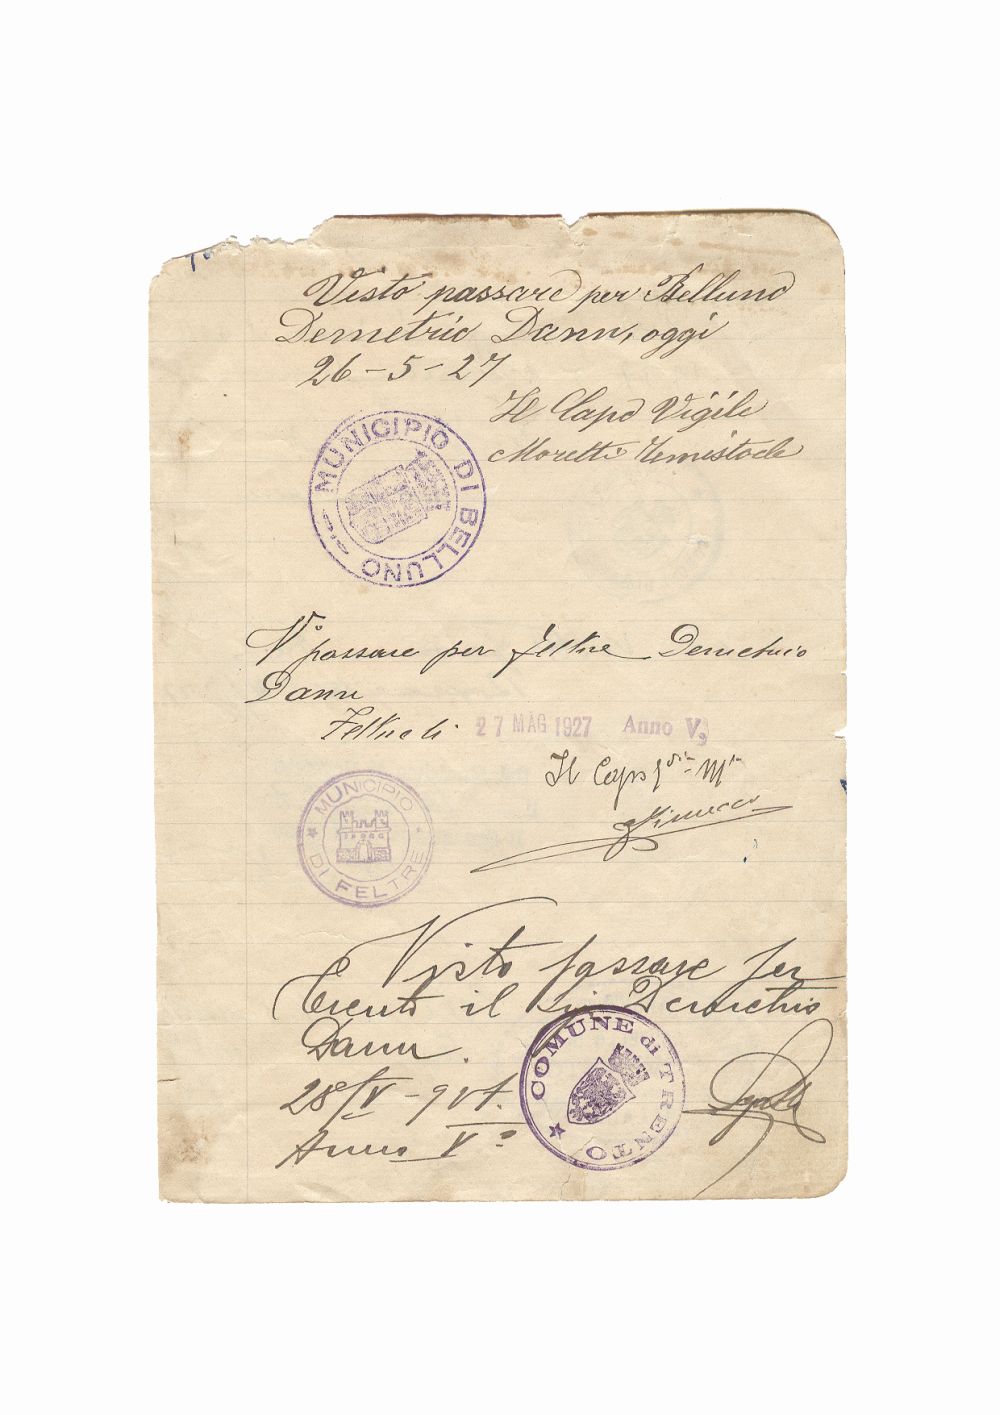 Visto passare per Belluno
Demetrio Dann, oggi
26-5-27
Il Capo Vigile
Moretti Temistocle
MUNICIPIO DI BELLUNO
V° passare per Feltre Demetrio
Dann
Feltre li 27 MAG 1927 Anno V
Il Capo
MUNICIPIO DI FELTRE
Visto passare per
Trento il Sig. Demetrio
Dann.
28/V-927.
Anno V°
COMUNE di TRENTO